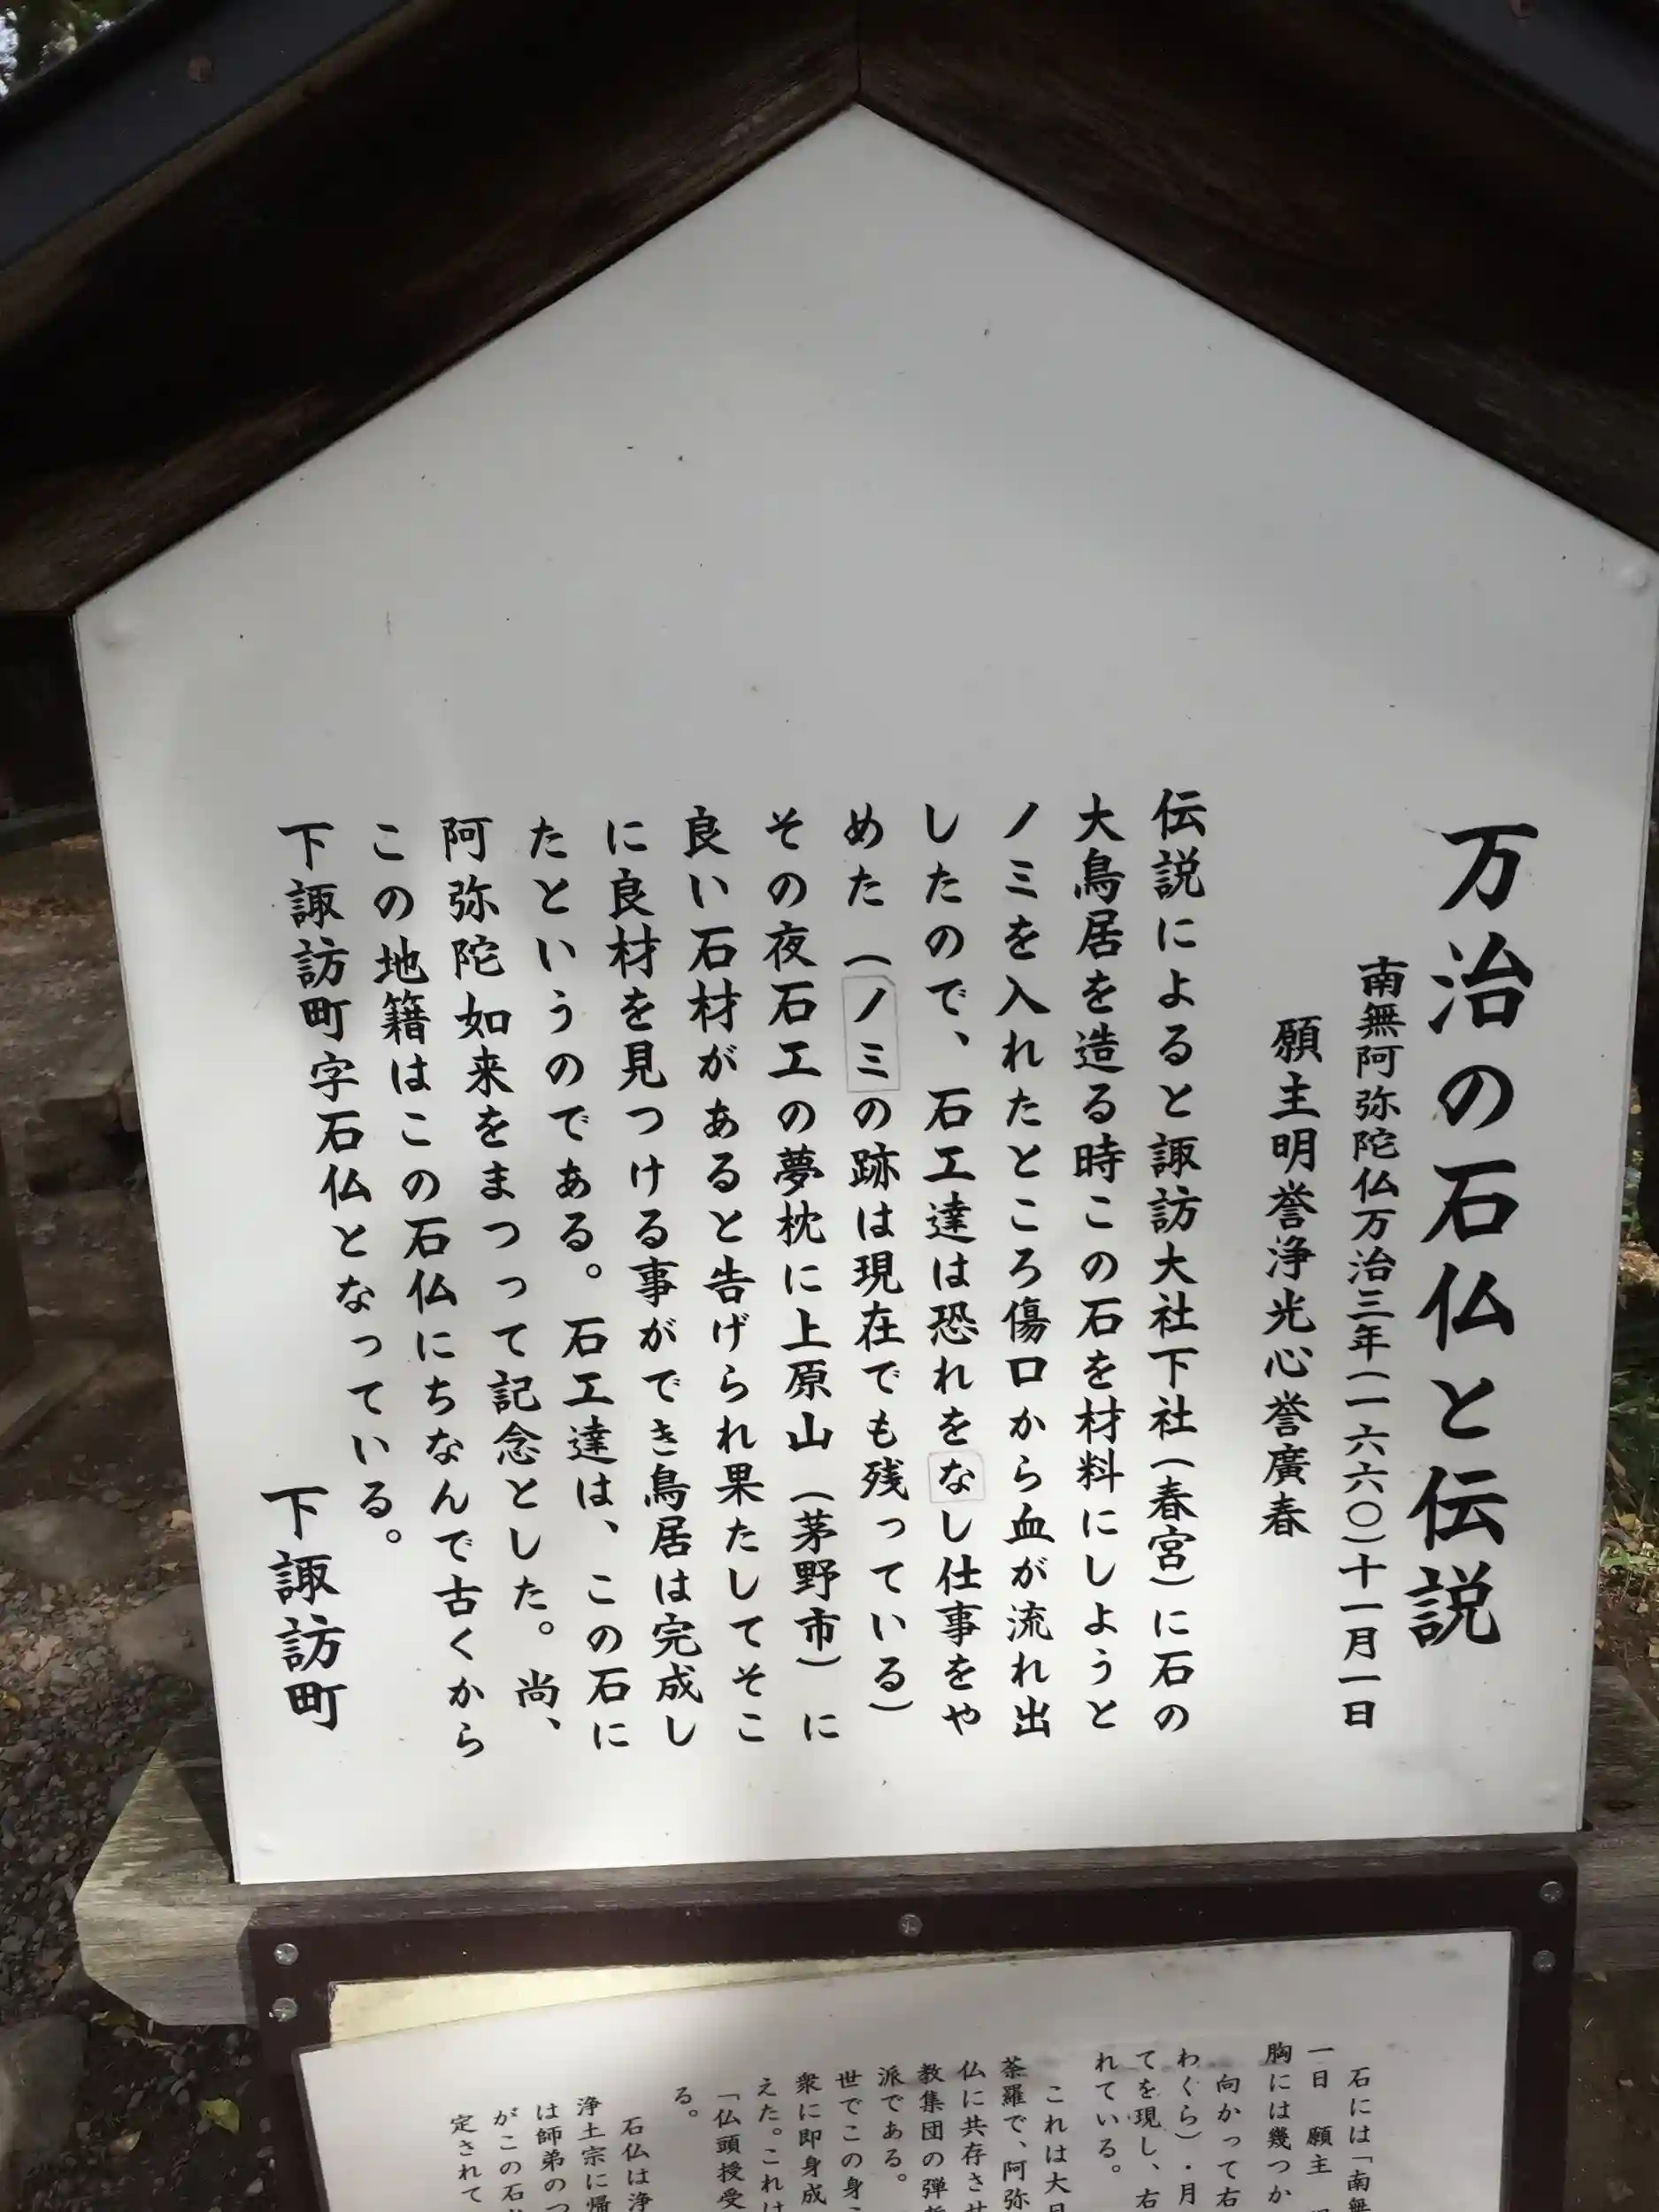 万治の石仏と伝説
南無阿弥陀仏万治三年(一六六〇)十一月一日
願主明誉浄光心誉廣春
伝説によると諏訪大社下社(春宮)に石の
大鳥居を造る時この石を材料にしようと
ノミを入れたところ傷口から血が流れ出
したので、石工達は恐れをなし仕事をや
めた(ノミの跡は現在でも残っている)
その夜石工の夢枕に上原山(茅野市)に
良い石材があると告げられ果たしてそこ
に良材を見つける事ができ鳥居は完成し
たというのである。石工達は、この石に
阿弥陀如来をまつって記念とした。尚、
この地籍はこの石仏にちなんで古くから
下諏訪町字石仏となっている。
下諏訪町
石には「南無
一日 願主
胸には幾つか
向かって右
わくら)・月
てを現し、右
れている。
これは大日
荼羅で、阿弥
仏に共存させ
教集団の弾
派である。
世でこの身
衆に即身成
えた。これは
「仏頭授受
る。
石仏は浄
浄土宗に帰
は師弟のつ
がこの石
定されて